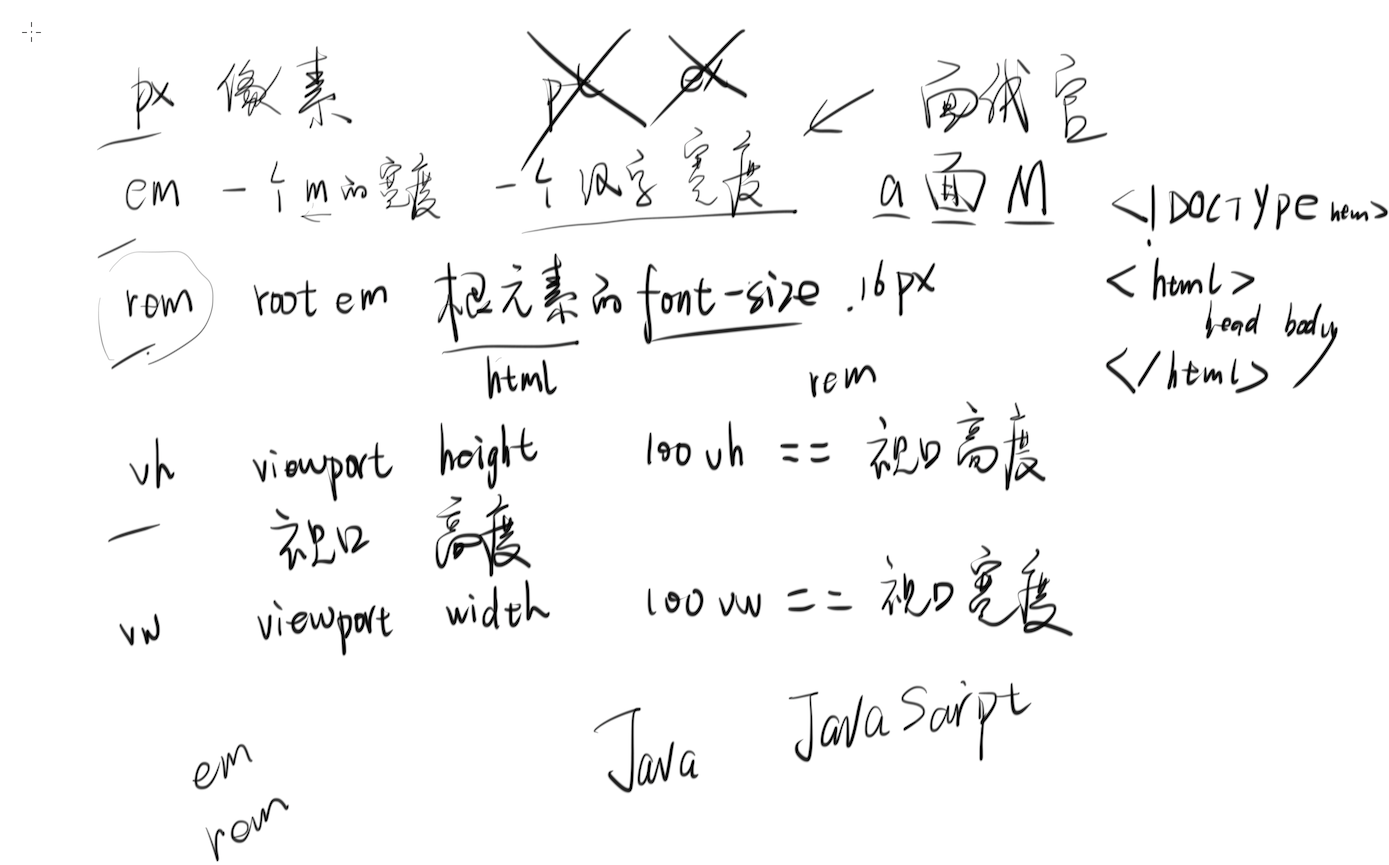 px 像素 pt ex 面试官
em 一个m的宽度 一个汉字宽度 a 面 M <!DOCTYPE html>
rem root em 根元素的font-size .16px <html>
head body
html rem </html>
vh viewport height 100vh == 视口高度
视口 高度
vw viewport width 100vw == 视口宽度
Java JavaScript
em
rem